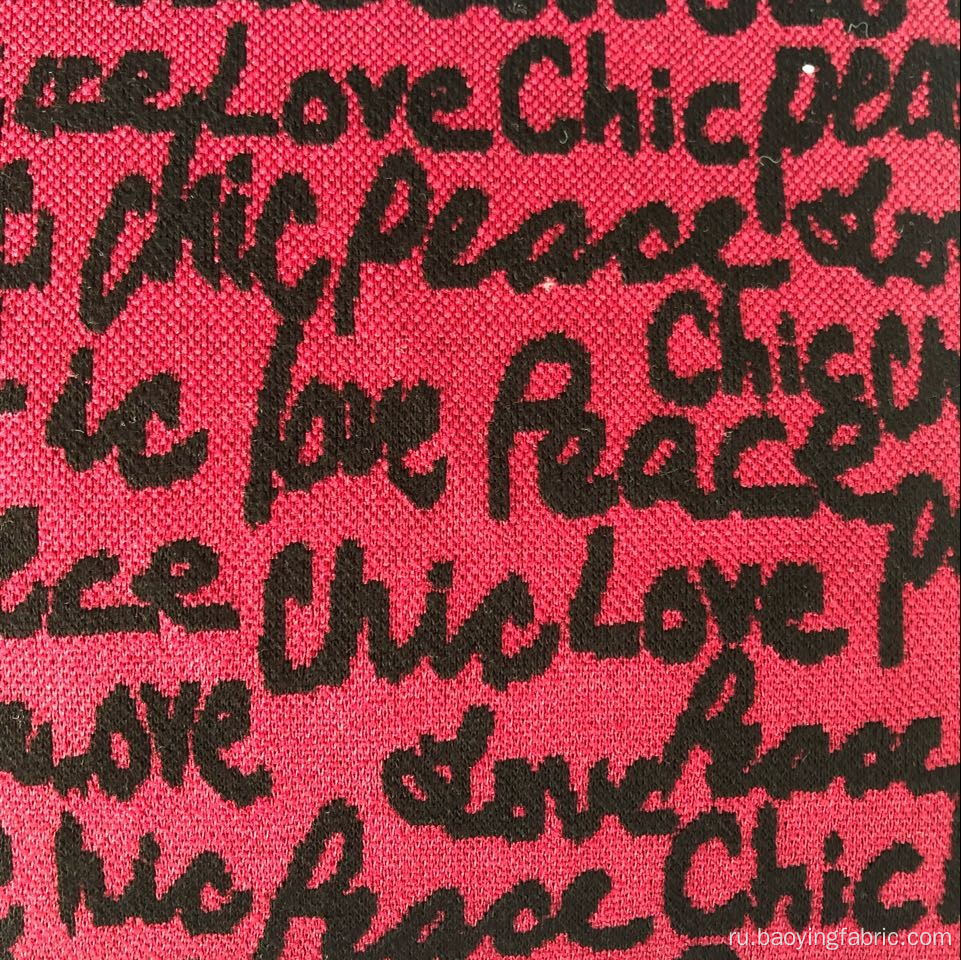 Love Chic pea
chic peace Lo
Chic
ic love Peace
ce Chic Love P
Love Peace
ove
hic Peace Chic
ru.baoyingfabric.com